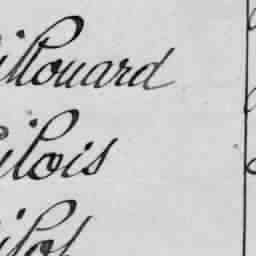 illouard
ilois
ilot